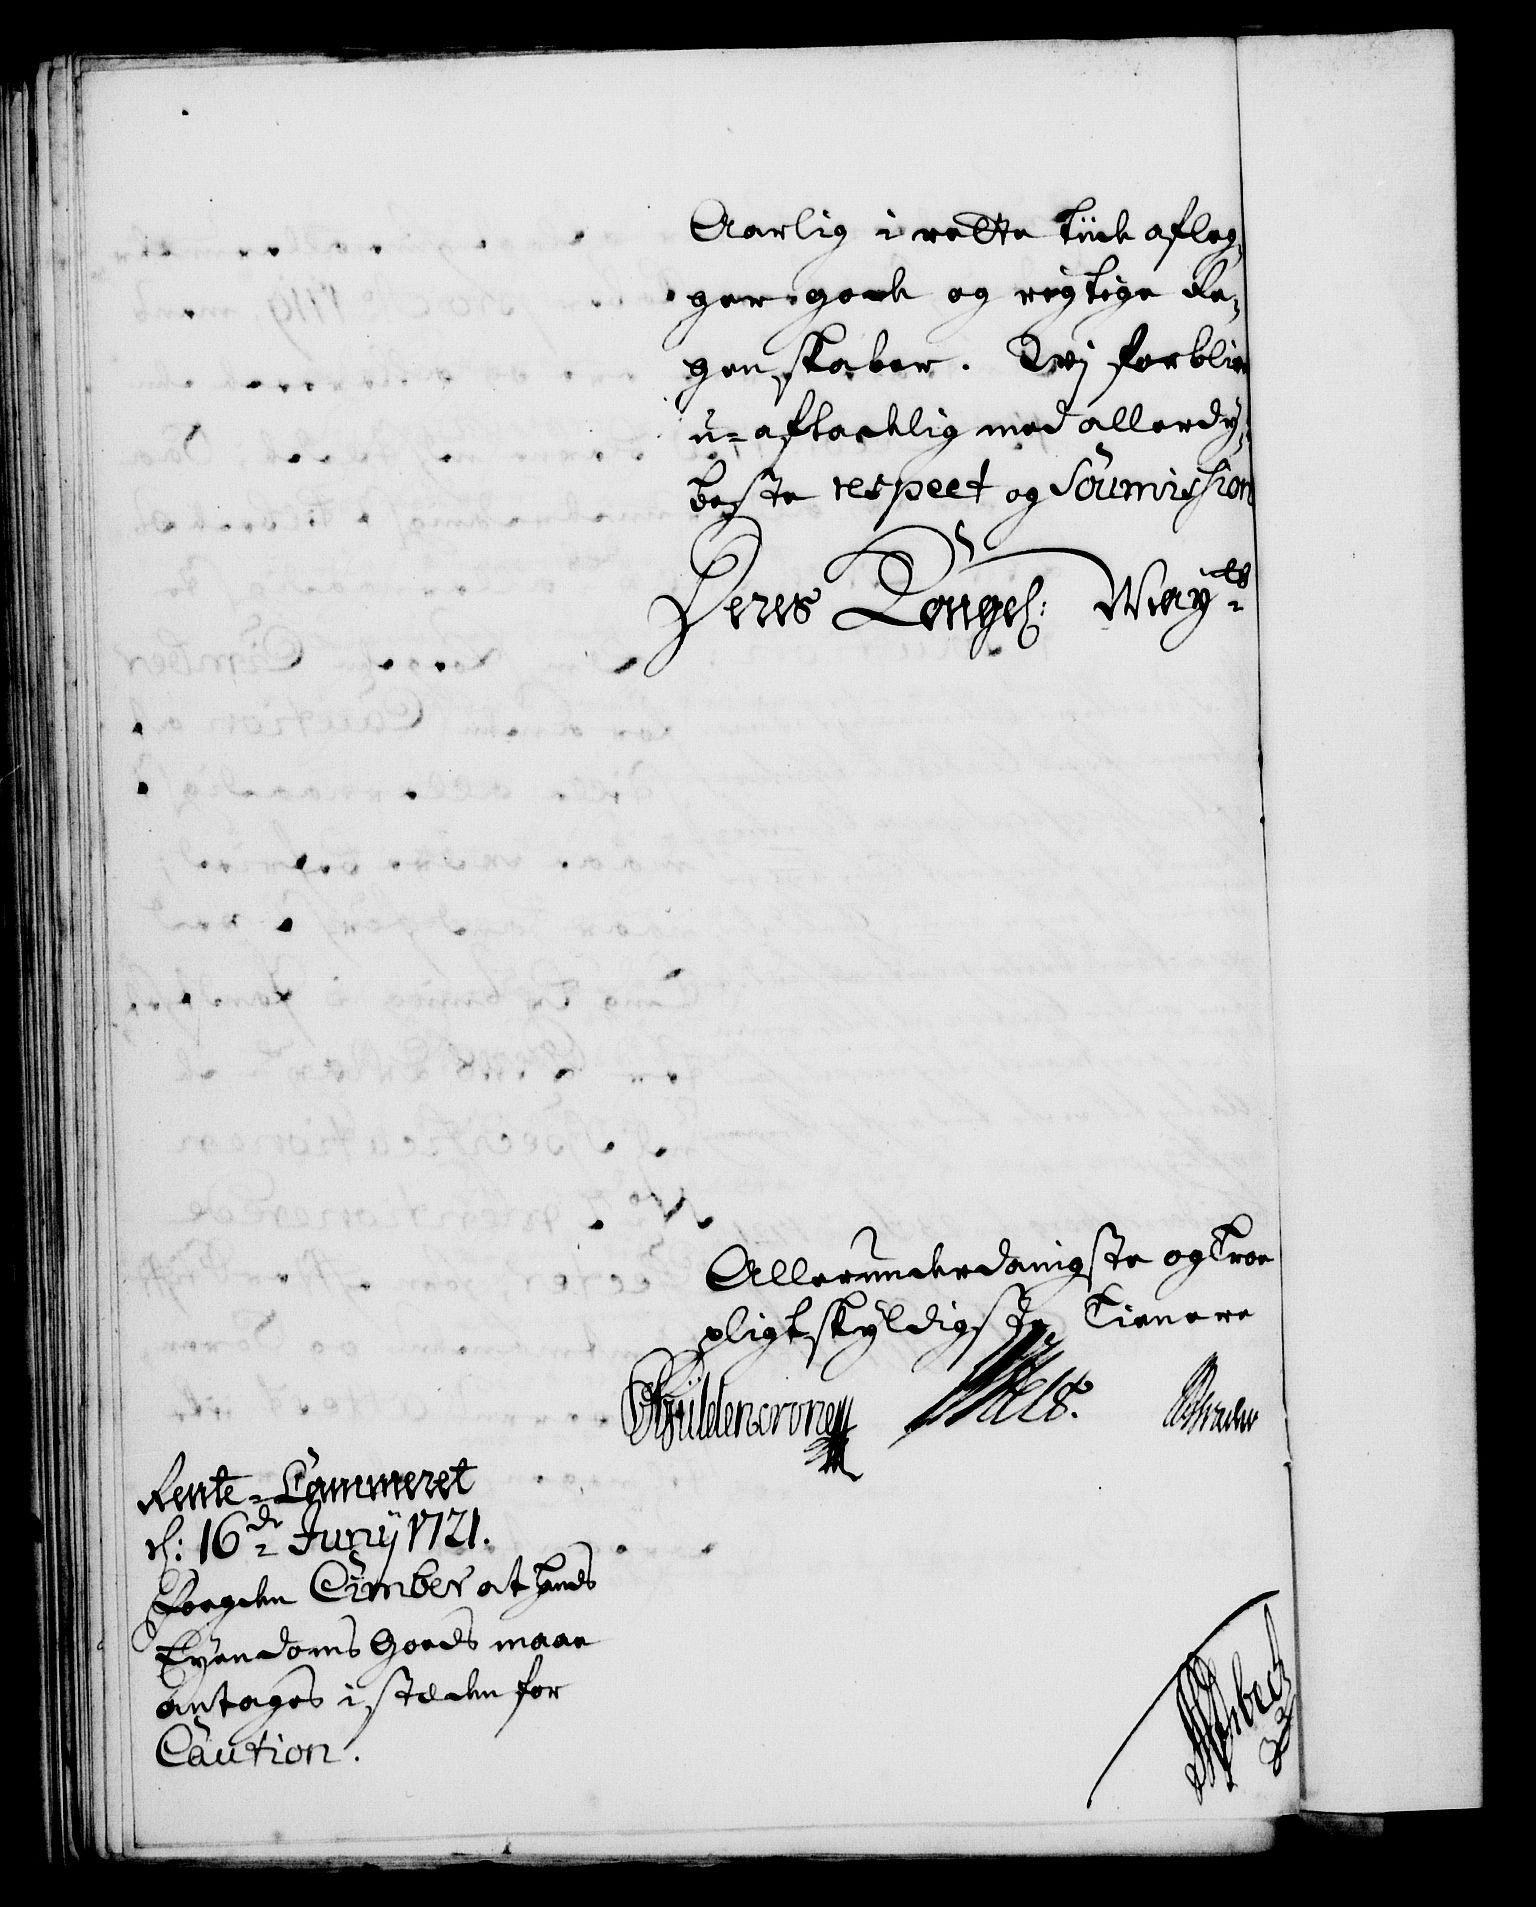 Aarlig i rette tiide afleg,
ger gode og rigtige Re,
genskaber. Wj forblive
u-afladelig med allerdy,
beste respect og Soumission
Deres Kongel: May:ts
Allerunderdanigste og troe
pligtskyldigste Tienere
Güldencrone Wels.
Rente-Cammeret
d: 16de Junij 1721.
Fogden Cimber at hands
Eyendoms Goeds maae
antages i steden for
Caution.